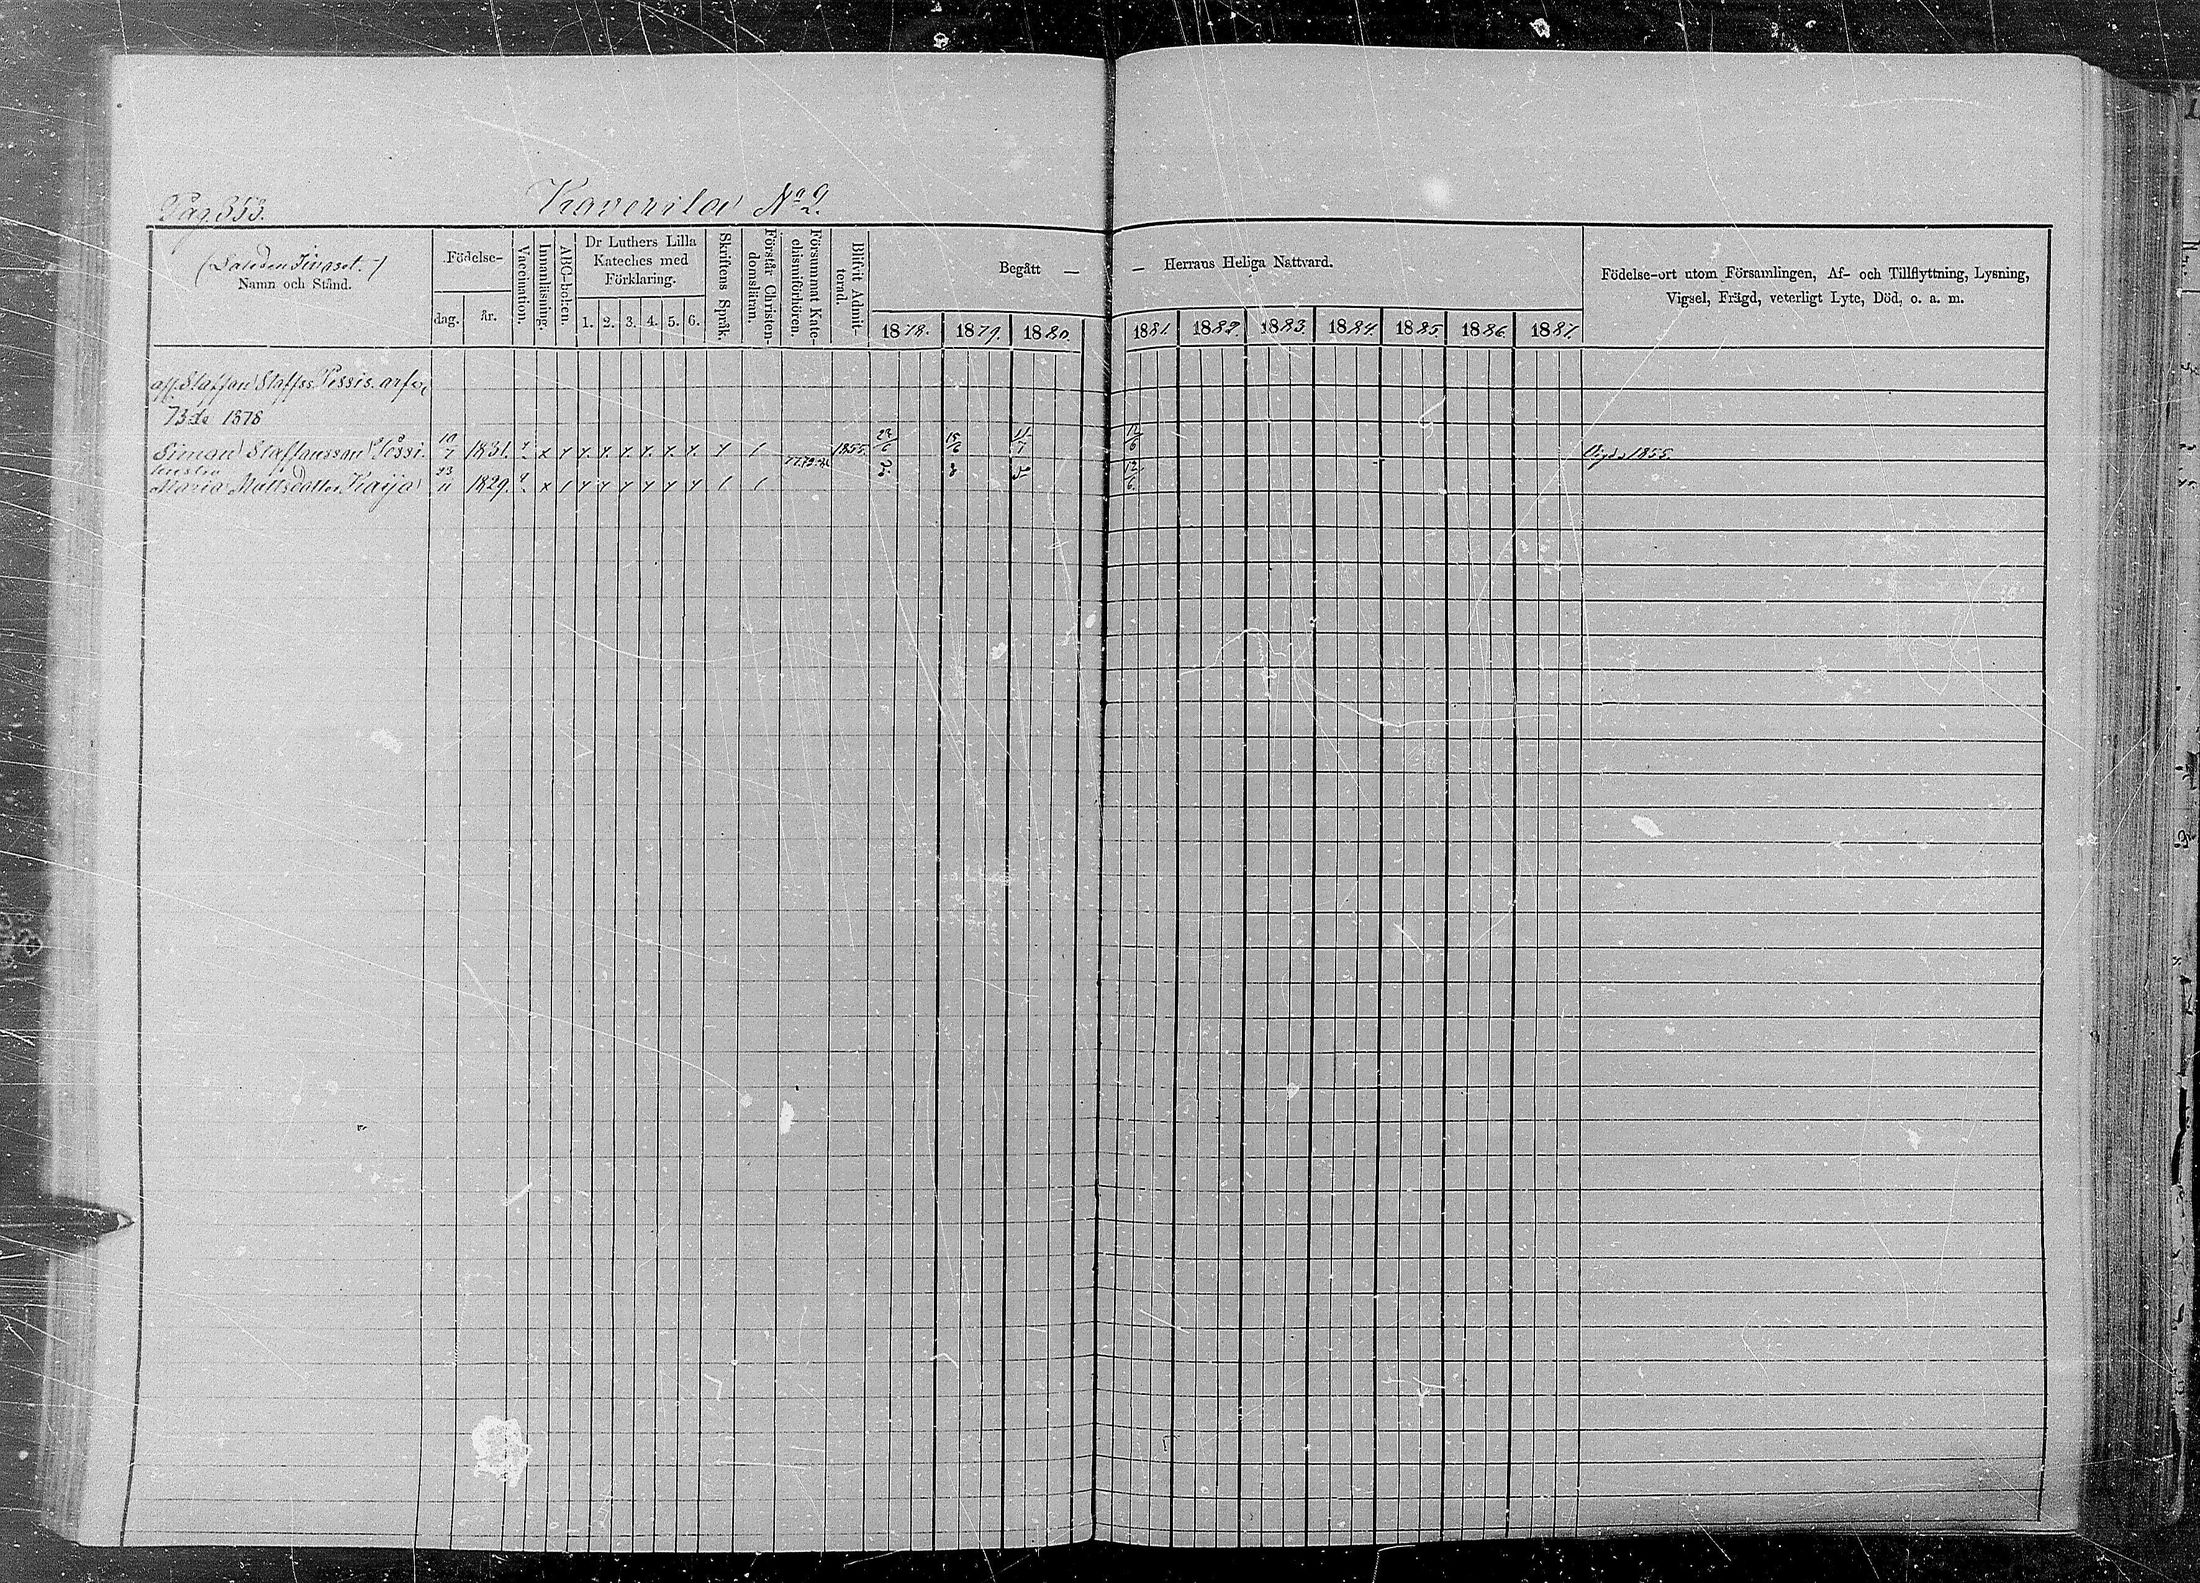 Pag. 353. Kaverila No 2.
Namn och Stånd.
Födelse-
dag. år.
Vaccination.
Innanläsning.
ABC-boken.
Dr Luthers Lilla
Kateches med
Förklaring.
1. 2. 3. 4. 5. 6.
Skriftens Språk.
Förstår Christen-
domsläran.
Försummat Kate-
chismiförhören.
Blifvit Admit-
terad.
Begått — — Herrans Heliga Nattvard.
1878. 1879. 1880. 1881 1882. 1883. 1884. 1885. 1886. 1887.
Födelse-ort utom Församlingen, Af- och Tillflyttning, Lysning,
Vigsel, Frägd, veterligt Lyte, Död, o. a. m.
Staffan Staffss
1878
Simon Staffansson 10/7 1831. x 1855. 23/6 15/6 11/7 12/6 1855.
hustru
Maria Mattsdotter Kaija 23/11 1829. x 12/6